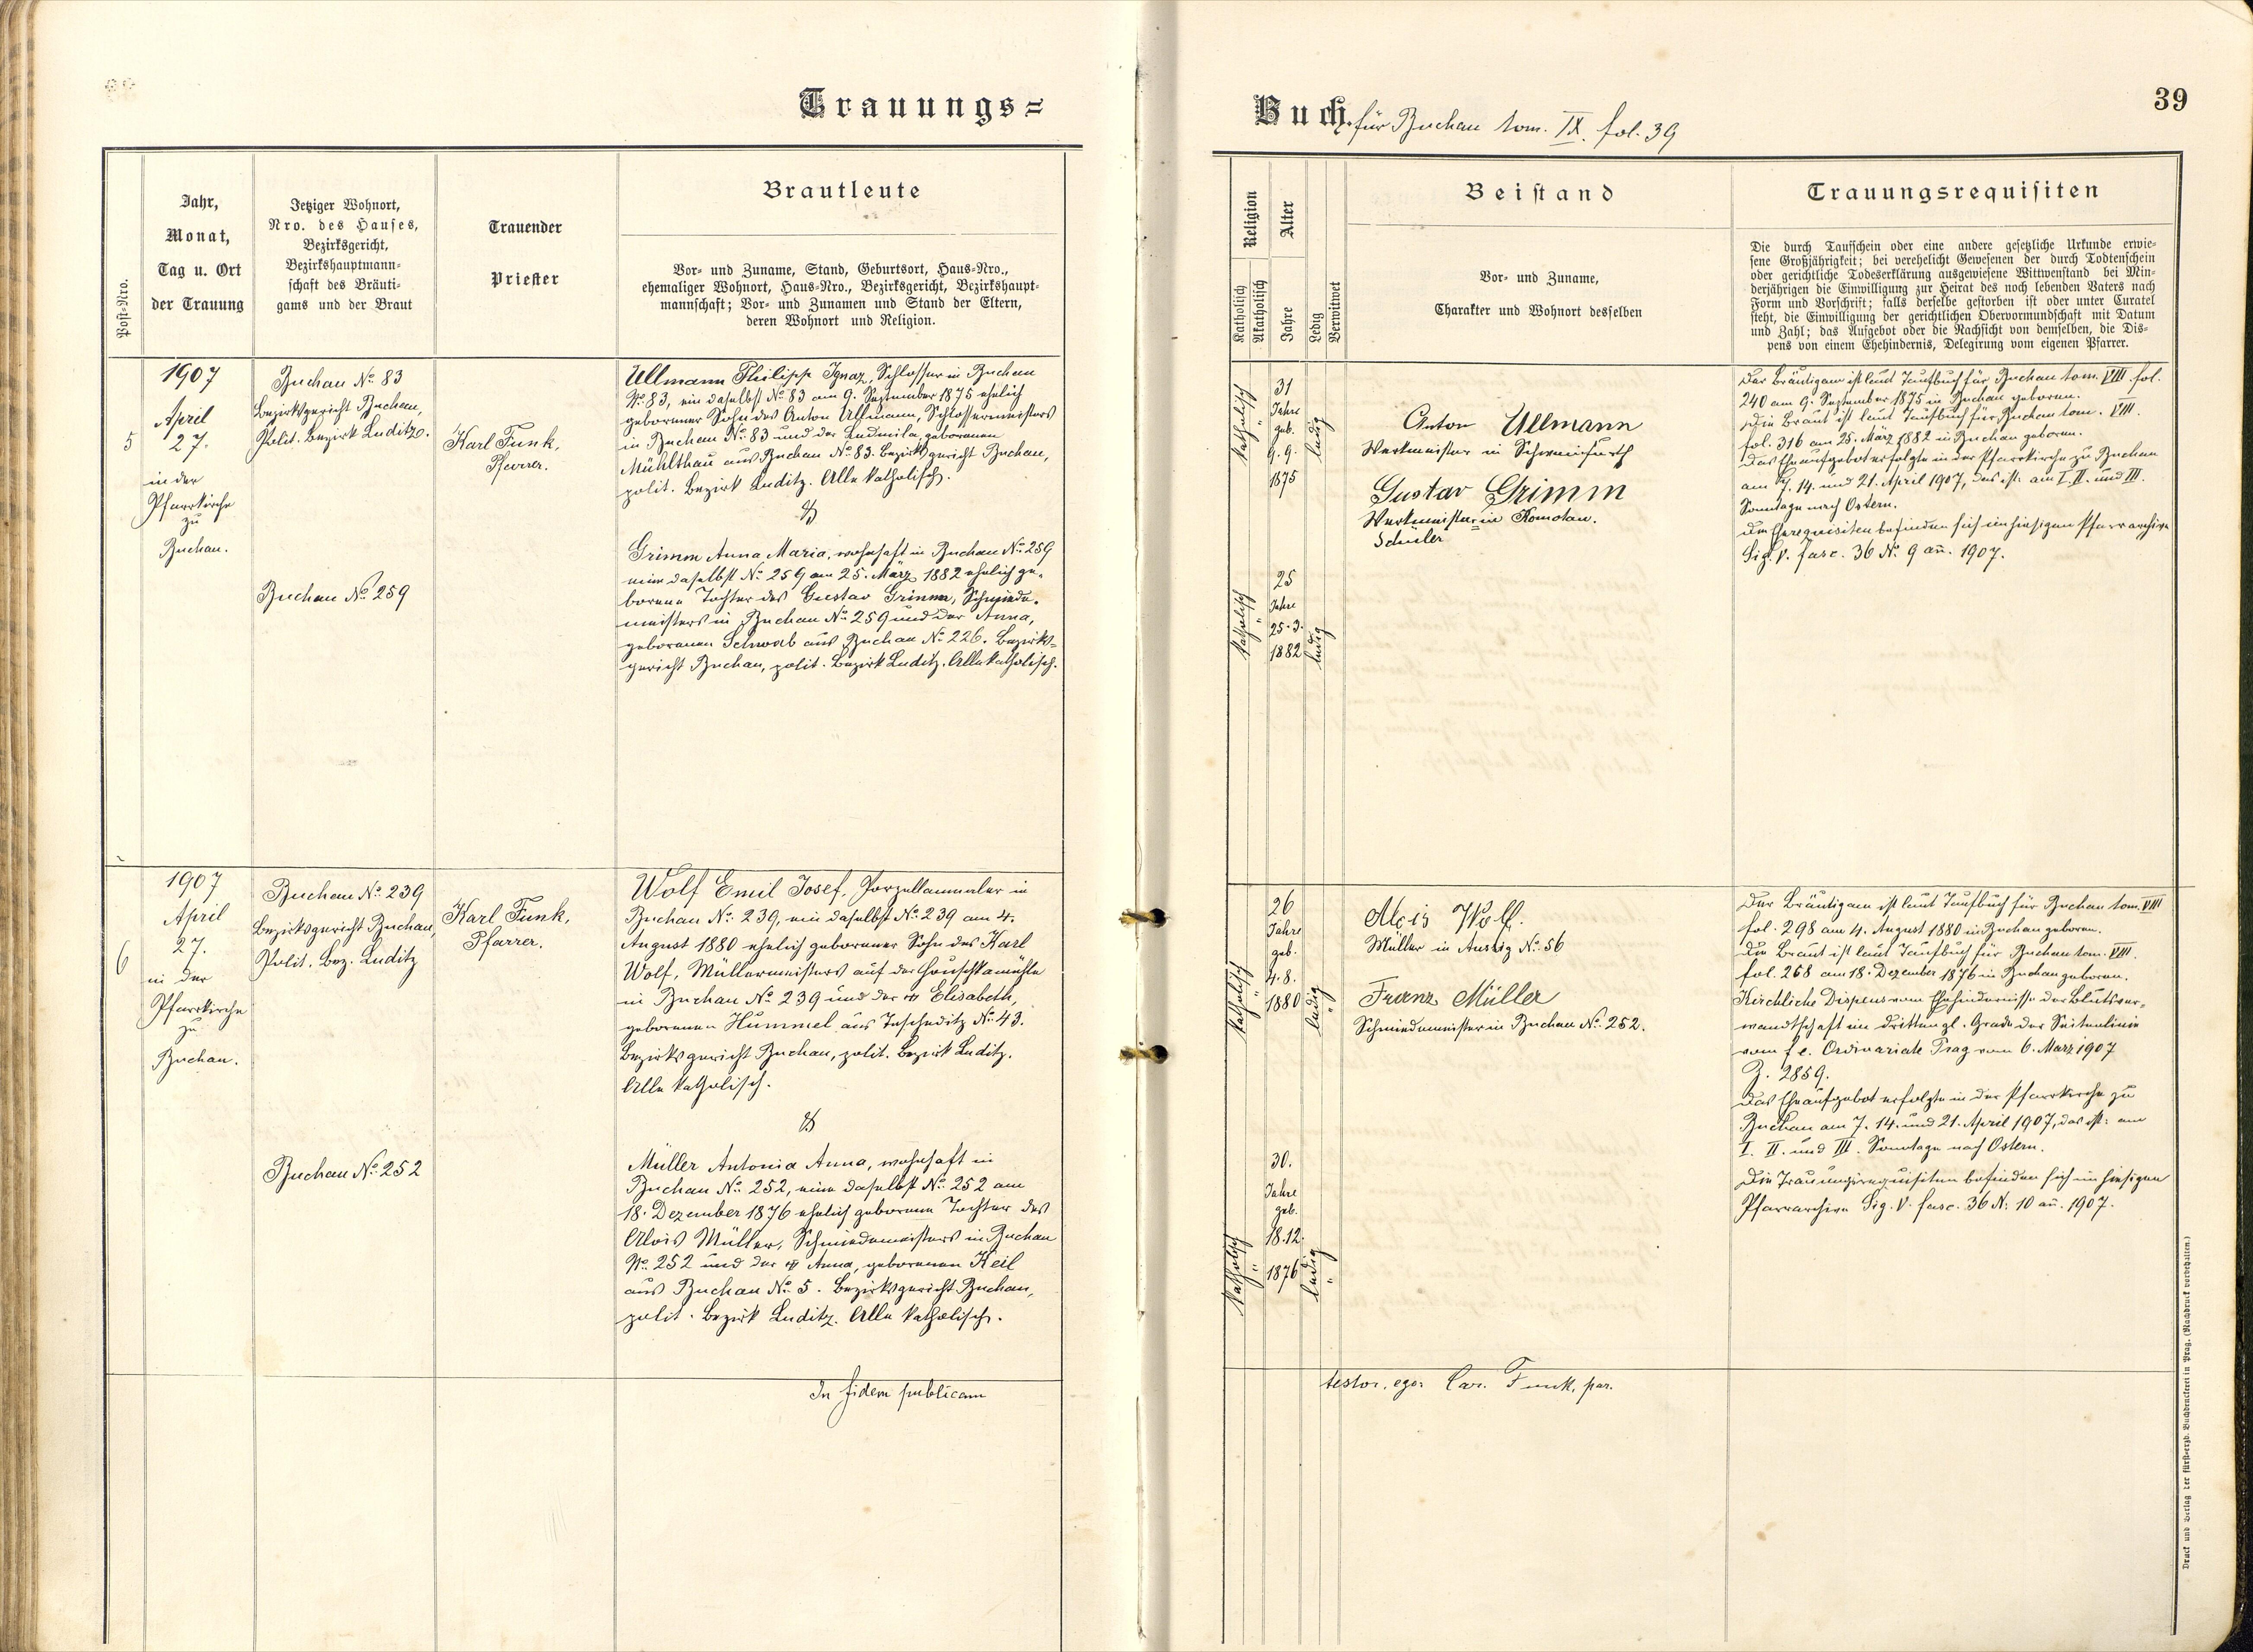 Trauungs=
Post=Nro.
Jahr,
Monat,
Tag u. Ort
der Trauung
Jetziger Wohnort,
Nro. des Hauses,
Bezirksgericht,
Bezirkshauptmann=
schaft des Bräuti=
gams und der Braut
Trauender
Priester
Brautleute
Vor= und Zuname, Stand, Geburtsort, Haus=Nro.,
ehemaliger Wohnort, Haus=Nro., Bezirksgericht, Bezirkshaupt=
mannschaft; Vor= und Zunamen und Stand der Eltern,
deren Wohnort und Religion.
5
1907
April
27.
in der
Pfarrkirche
zu
Buchau.
Buchau No. 83
Bezirksgericht Buchau,
Polit. Bezirk Luditz.
Buchau No. 259
Karl Funk,
Pfarrer.
Ullmann Philipp Ignaz, Schlosser in Buchau
No. 83, ein daselbst No. 83 am 9. September 1875 ehelich
geborener Sohn des Anton Ullmann, Schlossermeisters
in Buchau No. 83 und der Ludmila, geborenen
Mühlthau aus Buchau No. 83. Bezirksgericht Buchau,
polit. Bezirk Luditz. Alle katholisch.
Grimm Anna Maria, wohnhaft in Buchau No. 259
eine daselbst No. 259 am 25. März 1882 ehelich ge=
borene Tochter des Gustav Grimm, Schmiede=
meisters in Buchau No. 259 und der Anna,
geborenen Schwab aus Buchau No. 226. Bezirks=
gericht Buchau, polit. Bezirk Luditz. Alle katholisch.
6
1907
April
27.
in der
Pfarrkirche
zu
Buchau.
Buchau No. 239
Bezirksgericht Buchau,
Polit. Bez. Luditz
Buchau No. 252
Karl Funk,
Pfarrer.
Wolf Emil Josef, Porzellanmaler in
Buchau No. 239, ein daselbst No. 239 am 4.
August 1880 ehelich geborener Sohn des Karl
Wolf, Müllermeisters auf der
in Buchau No. 239 und der Elisabeth,
geborenen Hummel aus Tescheditz No. 43.
Bezirksgericht Buchau, polit. Bezirk Luditz.
Alle katholisch.
Müller Antonia Anna, wohnhaft in
Buchau No. 252, eine daselbst No. 252 am
18. Dezember 1876 ehelich geborene Tochter des
Alois Müller, Schmiedemeisters in Buchau
No. 252 und der Anna, geborenen Keil
aus Buchau No. 5. Bezirksgericht Buchau,
polit. Bezirk Luditz. Alle katholisch.
In fidem publicam
Buch. für Buchau tom. IX. fol. 39
39
Religion
Katholisch
Akatholisch
Alter
Jahre
Ledig
Verwitwet
Beistand
Vor= und Zuname,
Charakter und Wohnort desselben
Trauungsrequisiten
Die durch Taufschein oder eine andere gesetzliche Urkunde erwie=
sene Großjährigkeit; bei verehelicht Gewesenen der durch Todtenschein
oder gerichtliche Todeserklärung ausgewiesene Wittwenstand bei Min=
derjährigen die Einwilligung zur Heirat des noch lebenden Vaters nach
Form und Vorschrift; falls derselbe gestorben ist oder unter Curatel
steht, die Einwilligung der gerichtlichen Obervormundschaft mit Datum
und Zahl; das Aufgebot oder die Nachsicht von demselben, die Dis=
pens von einem Ehehindernis, Delegirung vom eigenen Pfarrer.
katholisch
31
Jahre
geb.
9. 9.
1875
ledig
katholisch
25
Jahre
25. 3.
1882
ledig
Anton Ullmann
Werkmeister in Schweinfurth
Gustav Grimm
Werkmeister= in Komotau.
Schüler
Der Bräutigam ist laut Taufbuch für Buchau tom. VIII fol.
240 am 9. September 1875 in Buchau geboren.
Die Braut ist laut Taufbuch für Buchau tom. VIII.
fol. 316 am 25. März 1882 in Buchau geboren.
Das Eheaufgebot erfolgte in der Pfarrkirche zu Buchau
am 7. 14. und 21. April 1907, das ist: am I. II. und III.
Sonntage nach Ostern.
Die Eherequisiten befinden sich im hiesigen Pfarrarchive
Sig. V. fasc. 36 No. 9 an̄. 1907.
katholisch
26
Jahre
geb.
4. 8.
1880
ledig
katholisch
30.
Jahre
geb.
18. 12.
1876
ledig
Alois Wolf.
Müller in Aussig No. 56
Franz Müller
Schmiedemeister in Buchau No. 252.
Der Bräutigam ist laut Taufbuch für Buchau tom. VIII
fol. 298 am 4. August 1880 in Buchau geboren.
Die Braut ist laut Taufbuch für Buchau tom. VIII.
fol. 268 am 18. Dezember 1876 in Buchau geboren.
Kirchliche Dispens vom Ehehindernisse der Blutsver=
wandtschaft im dritten gl. Grade der Seitenlinie
vom f. e. Ordinariate Prag vom 6. März 1907
Z. 2859.
Das Eheaufgebot erfolgte in der Pfarrkirche zu
Buchau am 7. 14. und 21. April 1907, das ist: am
I. II. und III. Sonntage nach Ostern.
Die Trauungsrequisiten befinden sich im hiesigen
Pfarrarchive Sig. V. fasc. 36 N. 10 an̄. 1907.
testor. ego: Car. Funk, par.
Druck und Verlag der fürst=erzb. Buchdruckerei in Prag. (Nachdruck vorbehalten.)